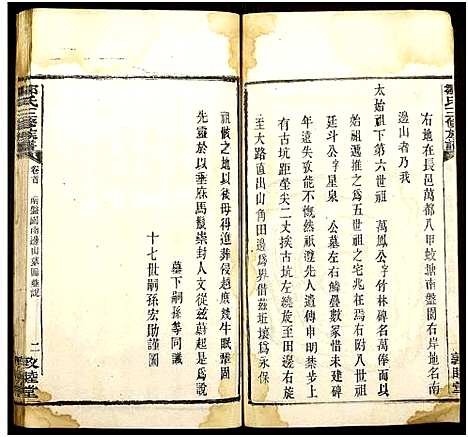 鄒氏三修族譜
右地在長邑萬都八甲蛟塘南盤園右岸地名南
邊山者乃我
太始祖下第六世祖 萬鳳公字竹林碑名萬俸而
三修更正推之為五世祖之宅兆在焉右附八世祖
延斗公字星泉 公墓左右鱗疊數冢惜未建碑
年遠失攷能不慨然祇遵先人遺傳申明禁步上
有古坑距坐尖二丈挨古坑左繞旋至田邊右直
至大路直出山角田邊為界借茲坵壤為永保
祖骸之地以後毋得進葬侵越庶幾牛眠鞏固
先靈於以垂庥馬鬣崇封人文從茲蔚起是為說
墓下嗣孫等同識
十七世嗣孫宏助謹圖
鄒氏三修族譜
卷首
南盤園南邊山墓圖墓說
二
敦睦堂
敦睦堂